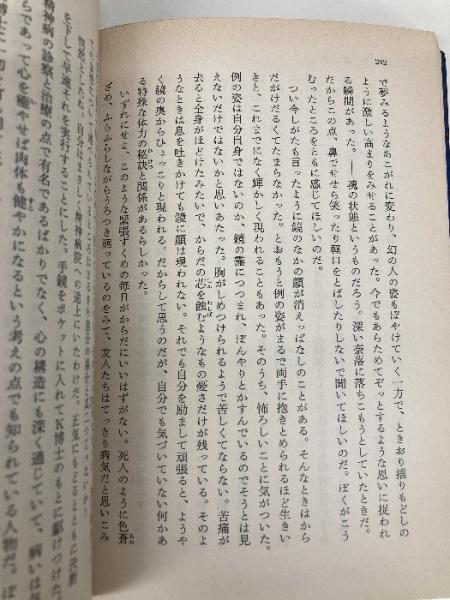 242
で夢みるようなあこがれに変わり、幻の人の姿もぼやけていく一方で、ときおり揺りもどしの
ように激しい高まりをみせることがあった。今でもあらためてぞっとするような思いに捉われ
る瞬間があった。――魂の状態というのだろう。深い奈落に落ちこもうとしていたときだ。
だからこの点、鼻でせせら笑ったり軽口をとばしたりしないで聞いてほしいのだ。ぼくがこう
むったところをともに感じてほしいのだ。
つい今しがたも言ったように鏡のなかの顔が消えっぱなしのことがある。そんなときはから
だがけだるくてたまらなかった。とおもうと例の姿がまるで両手に抱きとめられるほど生きい
きと、これまでになく輝かしく現われることもあった。そのうち、怖ろしいことに気がついた。
例の姿は自分自身ではないのか、鏡の靄につつまれ、ぼんやりとかすんでいるのでそうとは見
えないだけではないかと思いあたった。胸がしめつけられるようで苦しくてならない。苦痛が
去ると全身がほどけたみたいで、からだの芯を蝕むようなもの憂さだけが残っている。そのよ
うなときは息を吐きかけても鏡に顔は現われない。それでも自分を励まして頑張ると、ようや
く鏡の奥からひょっこりと現われる。だからして思うのだが、自分でも気づいていない何かあ
る特殊な体力の秘訣と関係があるらしかった。
いずれにせよ、このような緊張ずくめの毎日がからだにいいはずがない。死人のように色蒼
ざめ、ふらふらしながらうろつき廻っているのをみて、友人たちはてっきり病気だと思いこみ
を下して早速それを実行することにした。手鏡をポケットに入れてK博士のもとに駆けつけた。
精神病の診察と治療の点で有名であるばかりでなく、心の構造にも深く通じていて、病いは気
らであって心を癒やせば肉体も健やかになるという考えの点でも知られている人物だ。